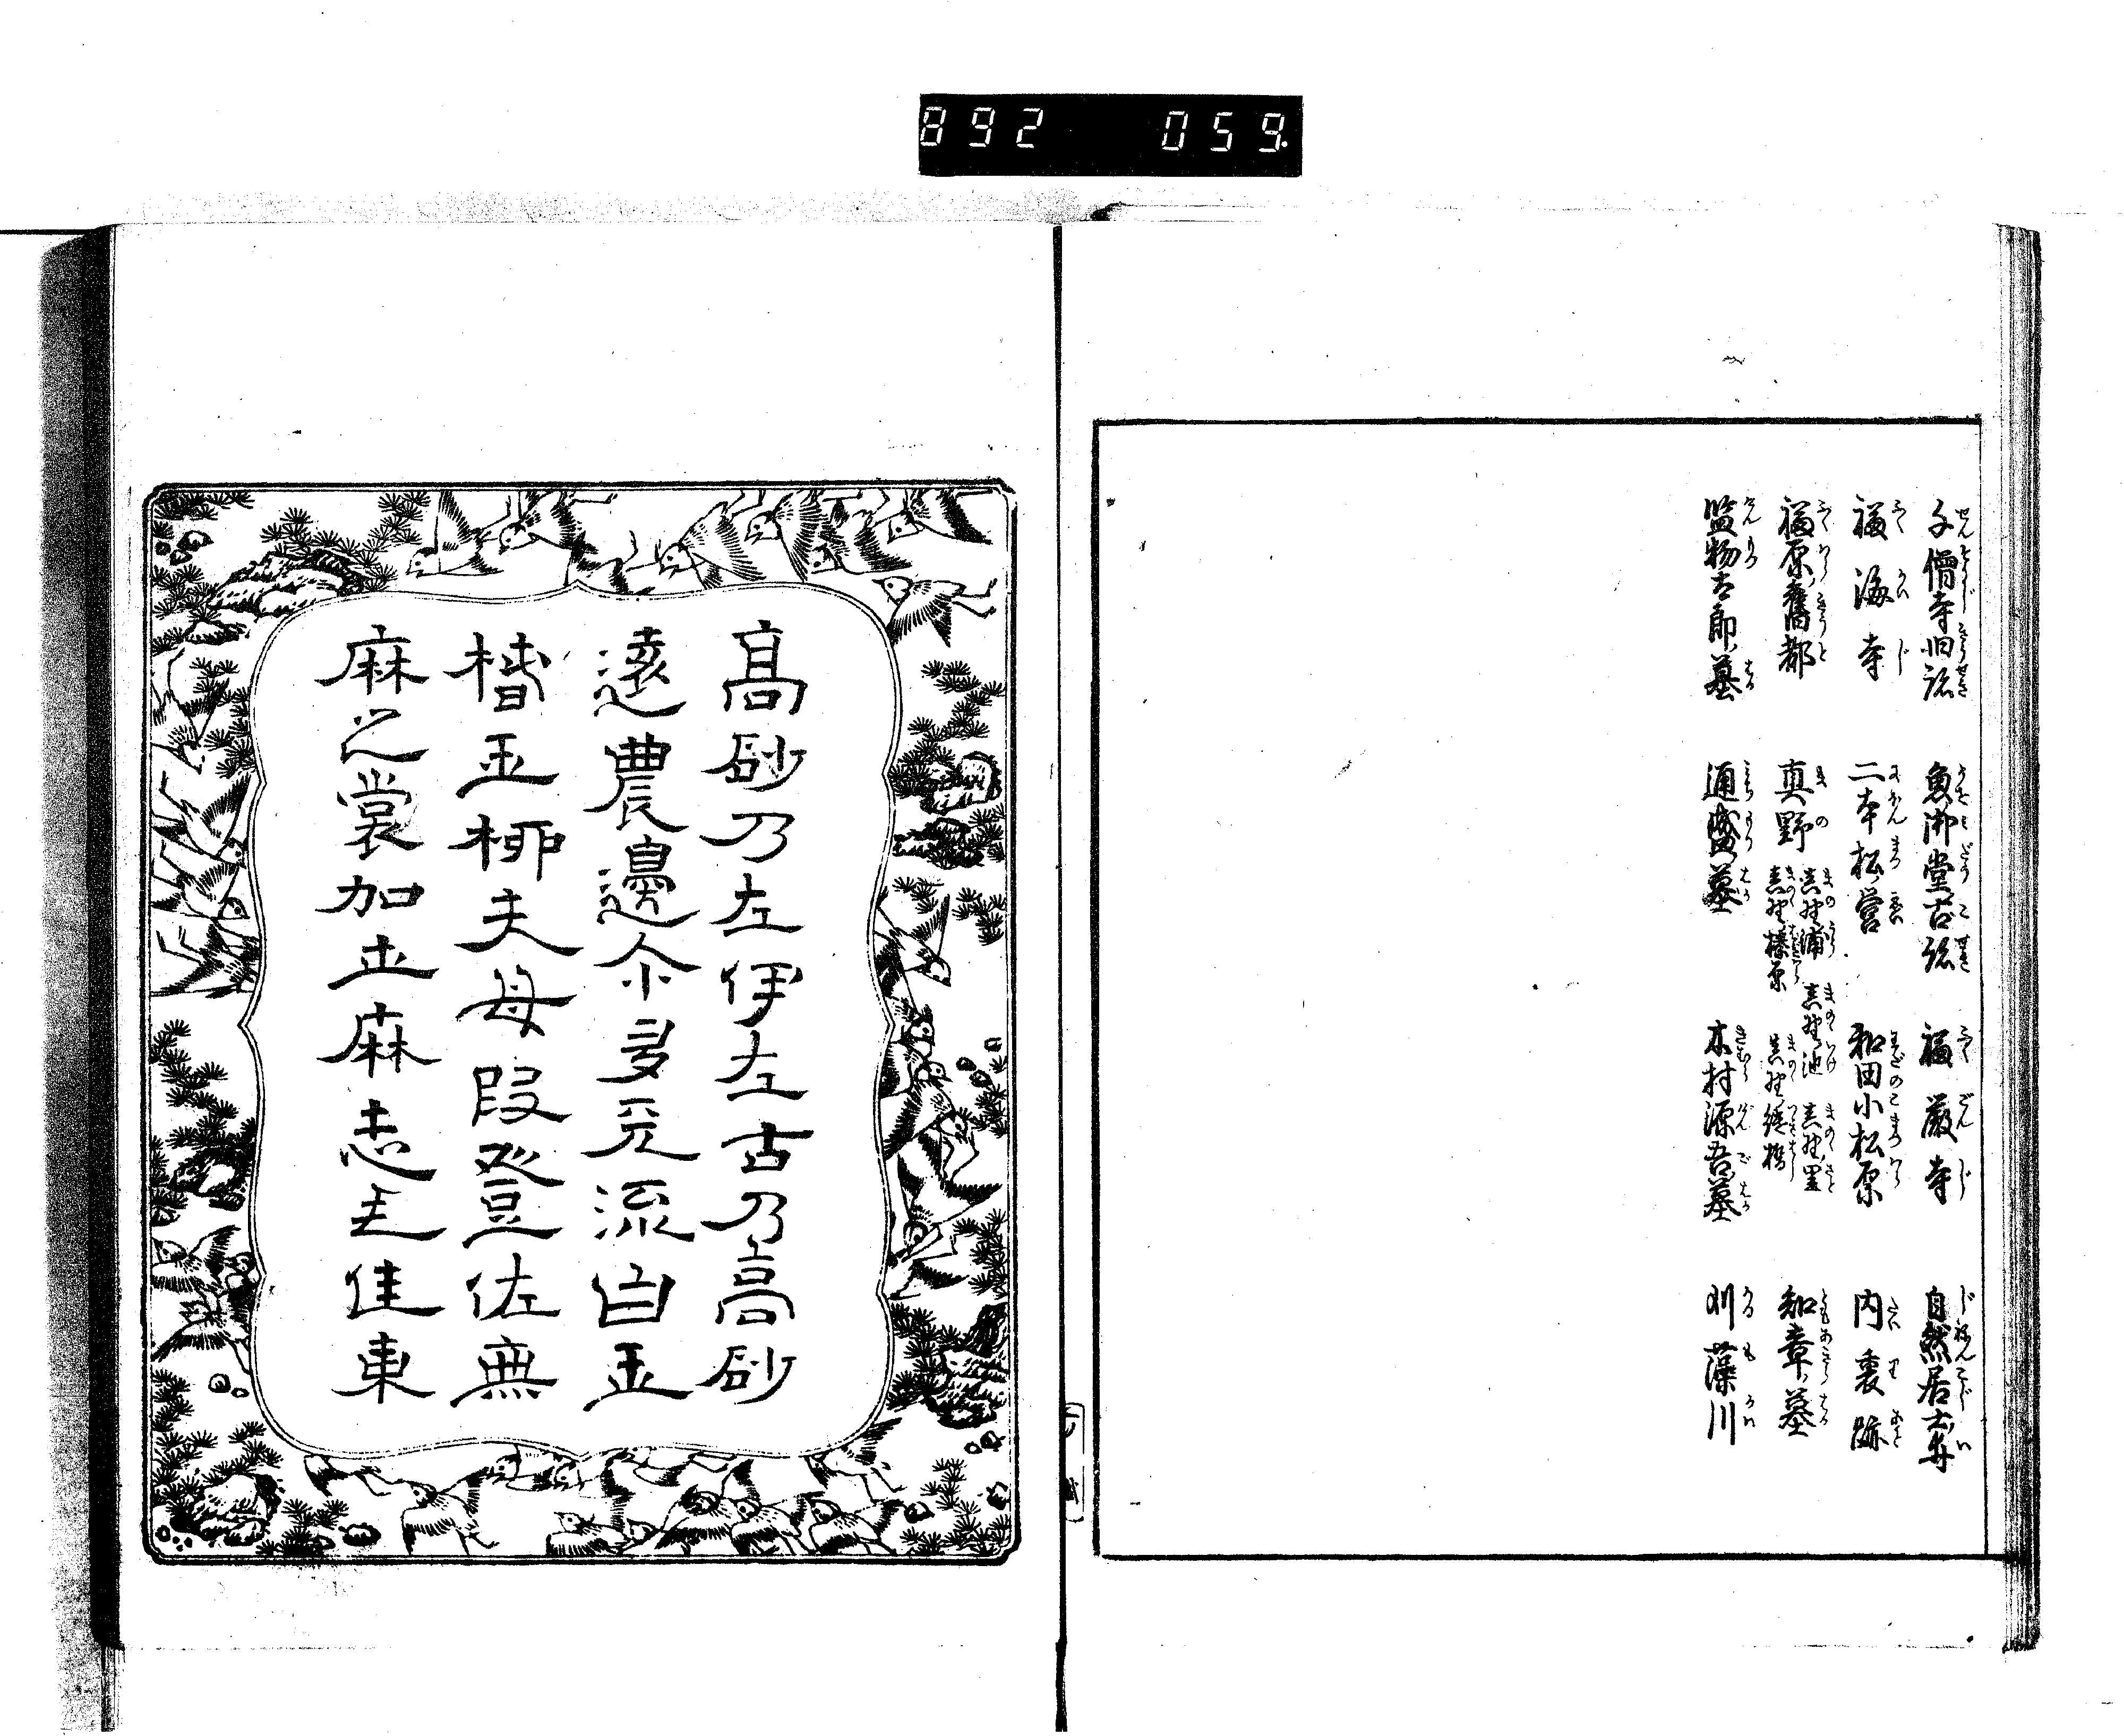 892 059
千僧寺旧跡 魚御堂古跡 福厳寺 自然居士井
福海寺 二本松営 和田小松原 内裏跡
福原舊都 真野 真野浦 真野池 真野里 真野榛原 真野継橋 知章墓
監物太郎墓 通盛墓 木村源吾墓 刈藻川
高砂乃左伊左古乃高砂
遠農邊尓多元流白玉
椿玉柳夫母段登佐無
麻之裳加止麻志毛佳東